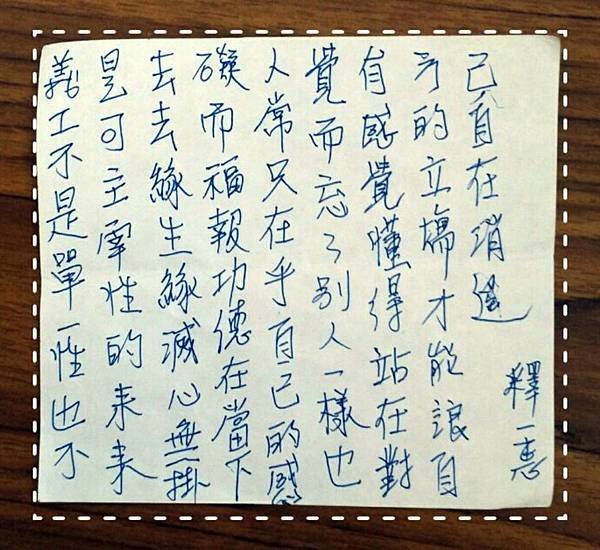 義工不是單一性也不
是可主宰性的來來
去去緣生緣滅心無掛
礙而福報功德在當下
人常只在乎自己的感
覺而忘了別人一樣也
有感覺懂得站在對
方的立場才能讓自
己自在消遙
釋一惠